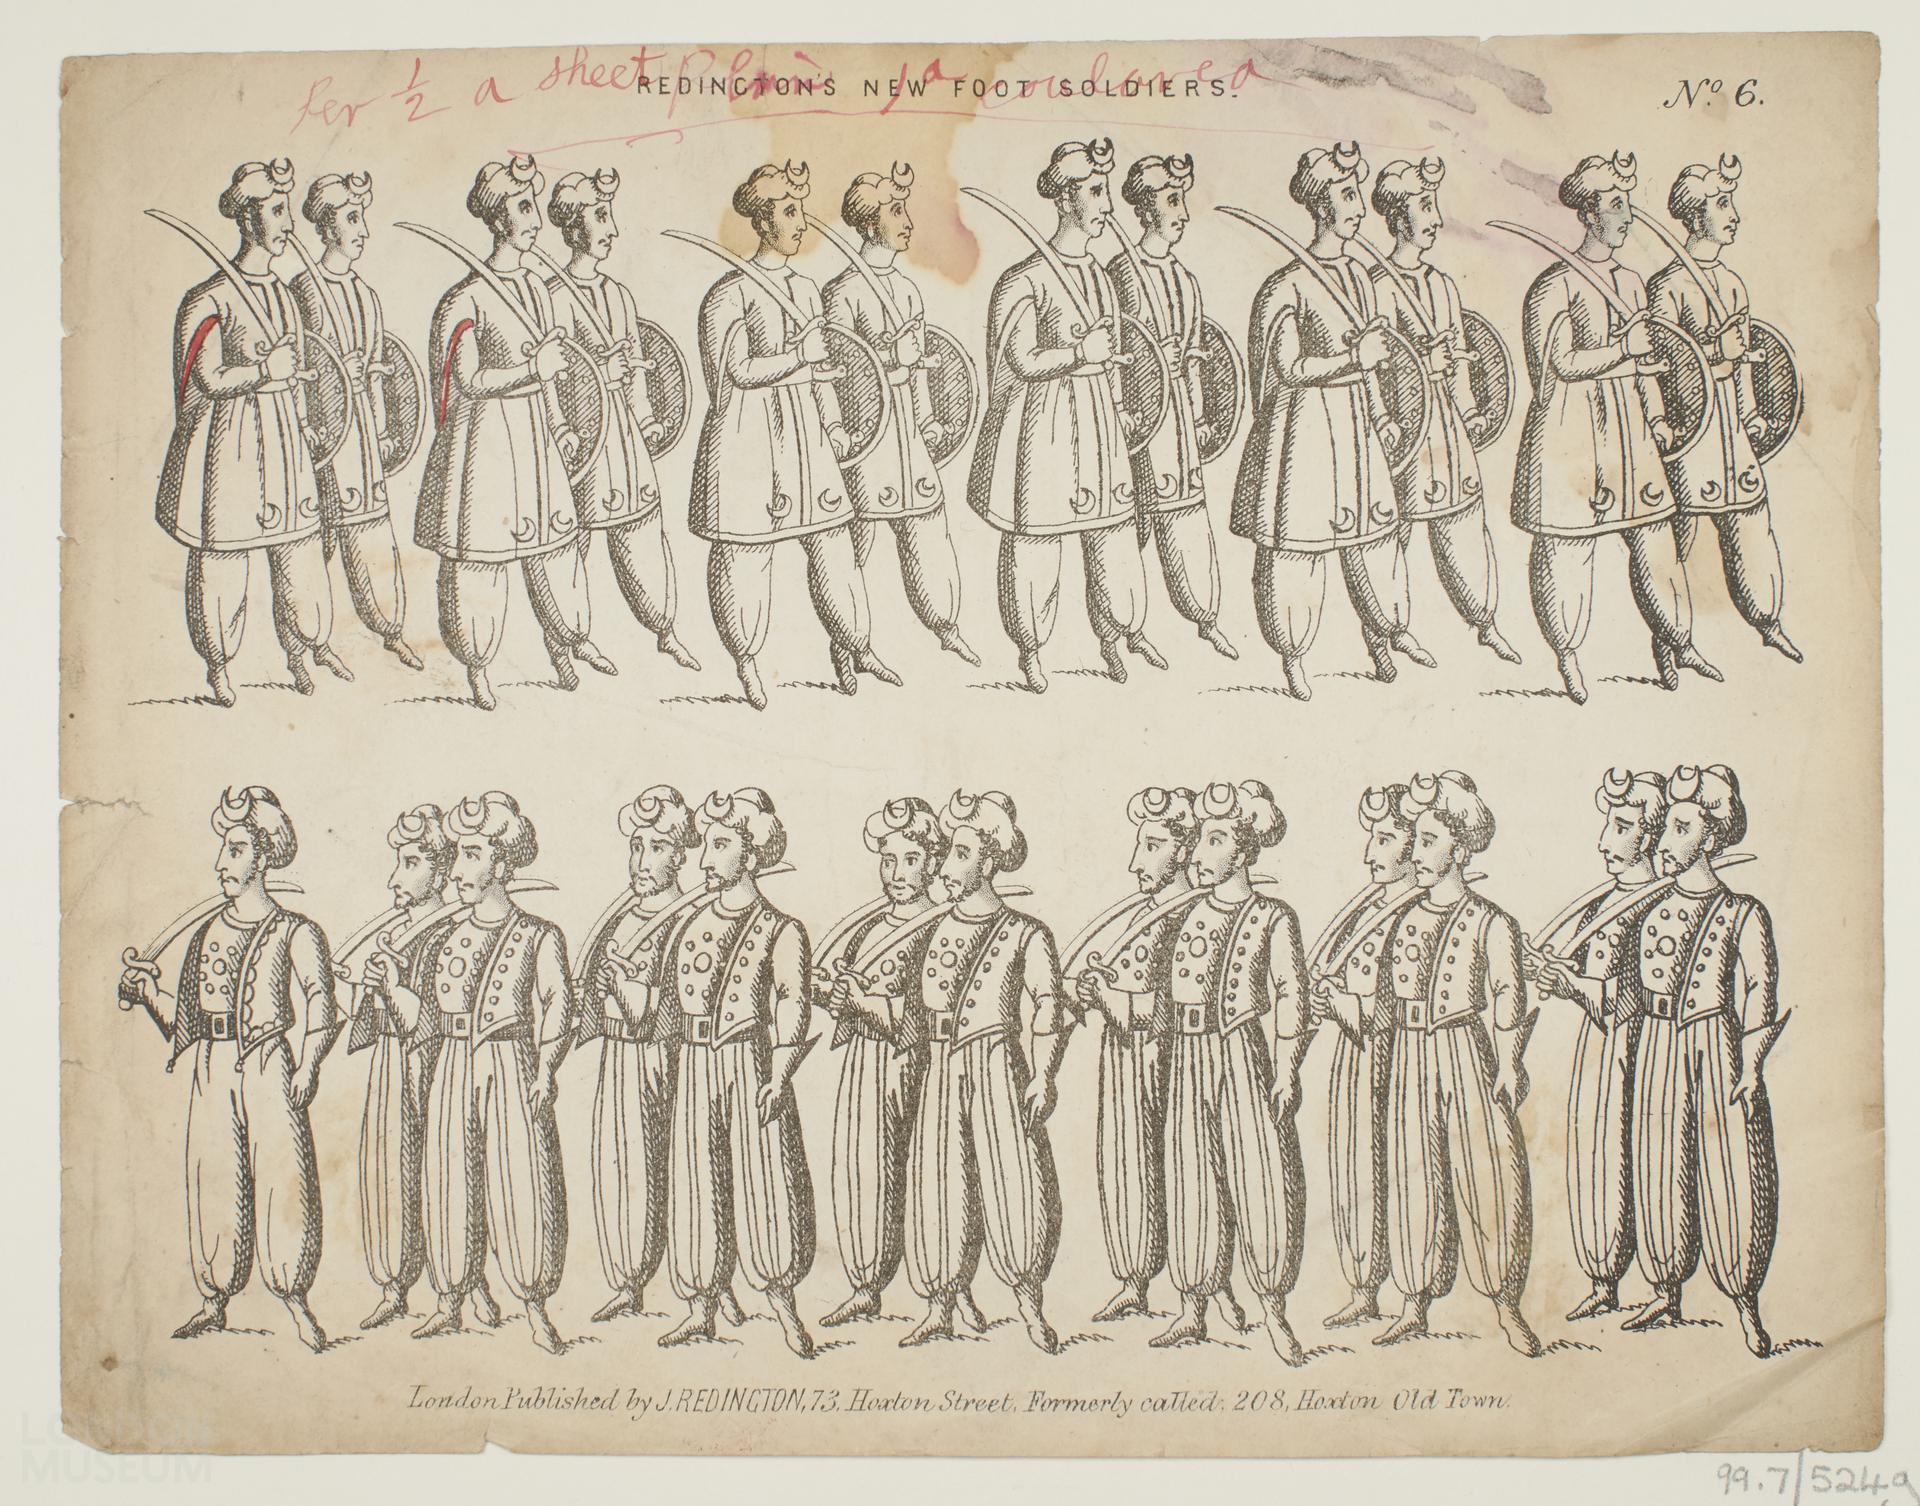 per ½ a sheet plain 1d coulored
REDINGTON'S NEW FOOT SOLDIERS.
Nº 6.
London Published by J. REDINGTON, 73, Hoxton Street, Formerly called, 208, Hoxton Old Town.
LONDON
MUSEUM
99.7/524a